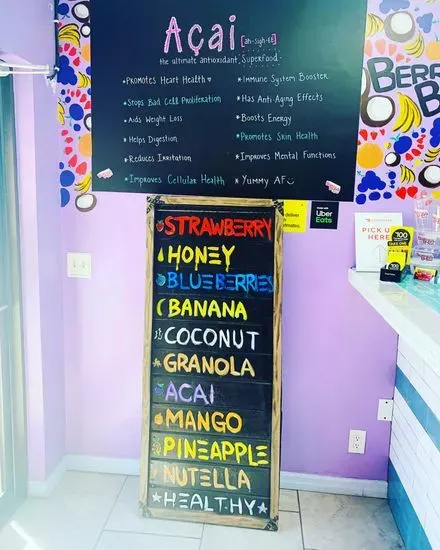 Açai [ah-sigh-EE]
the ultimate antioxidant Superfood
*Promotes Heart Health
*Stops Bad Cell Proliferation
*Aids Weight Loss
*Helps Digestion
*Reduces Irritation
*Improves Cellular Health
*Immune System Booster
*Has Anti-Aging Effects
*Boosts Energy
*Promotes Skin Health
*Improves Mental Functions
*Yummy AF
BERR
B
Uber
Eats
PICK U
HERE
100
STRAWBERRY
HONEY
BLUEBERRIES
BANANA
COCONUT
GRANOLA
ACAI
MANGO
PINEAPPLE
NUTELLA
HEALTHY